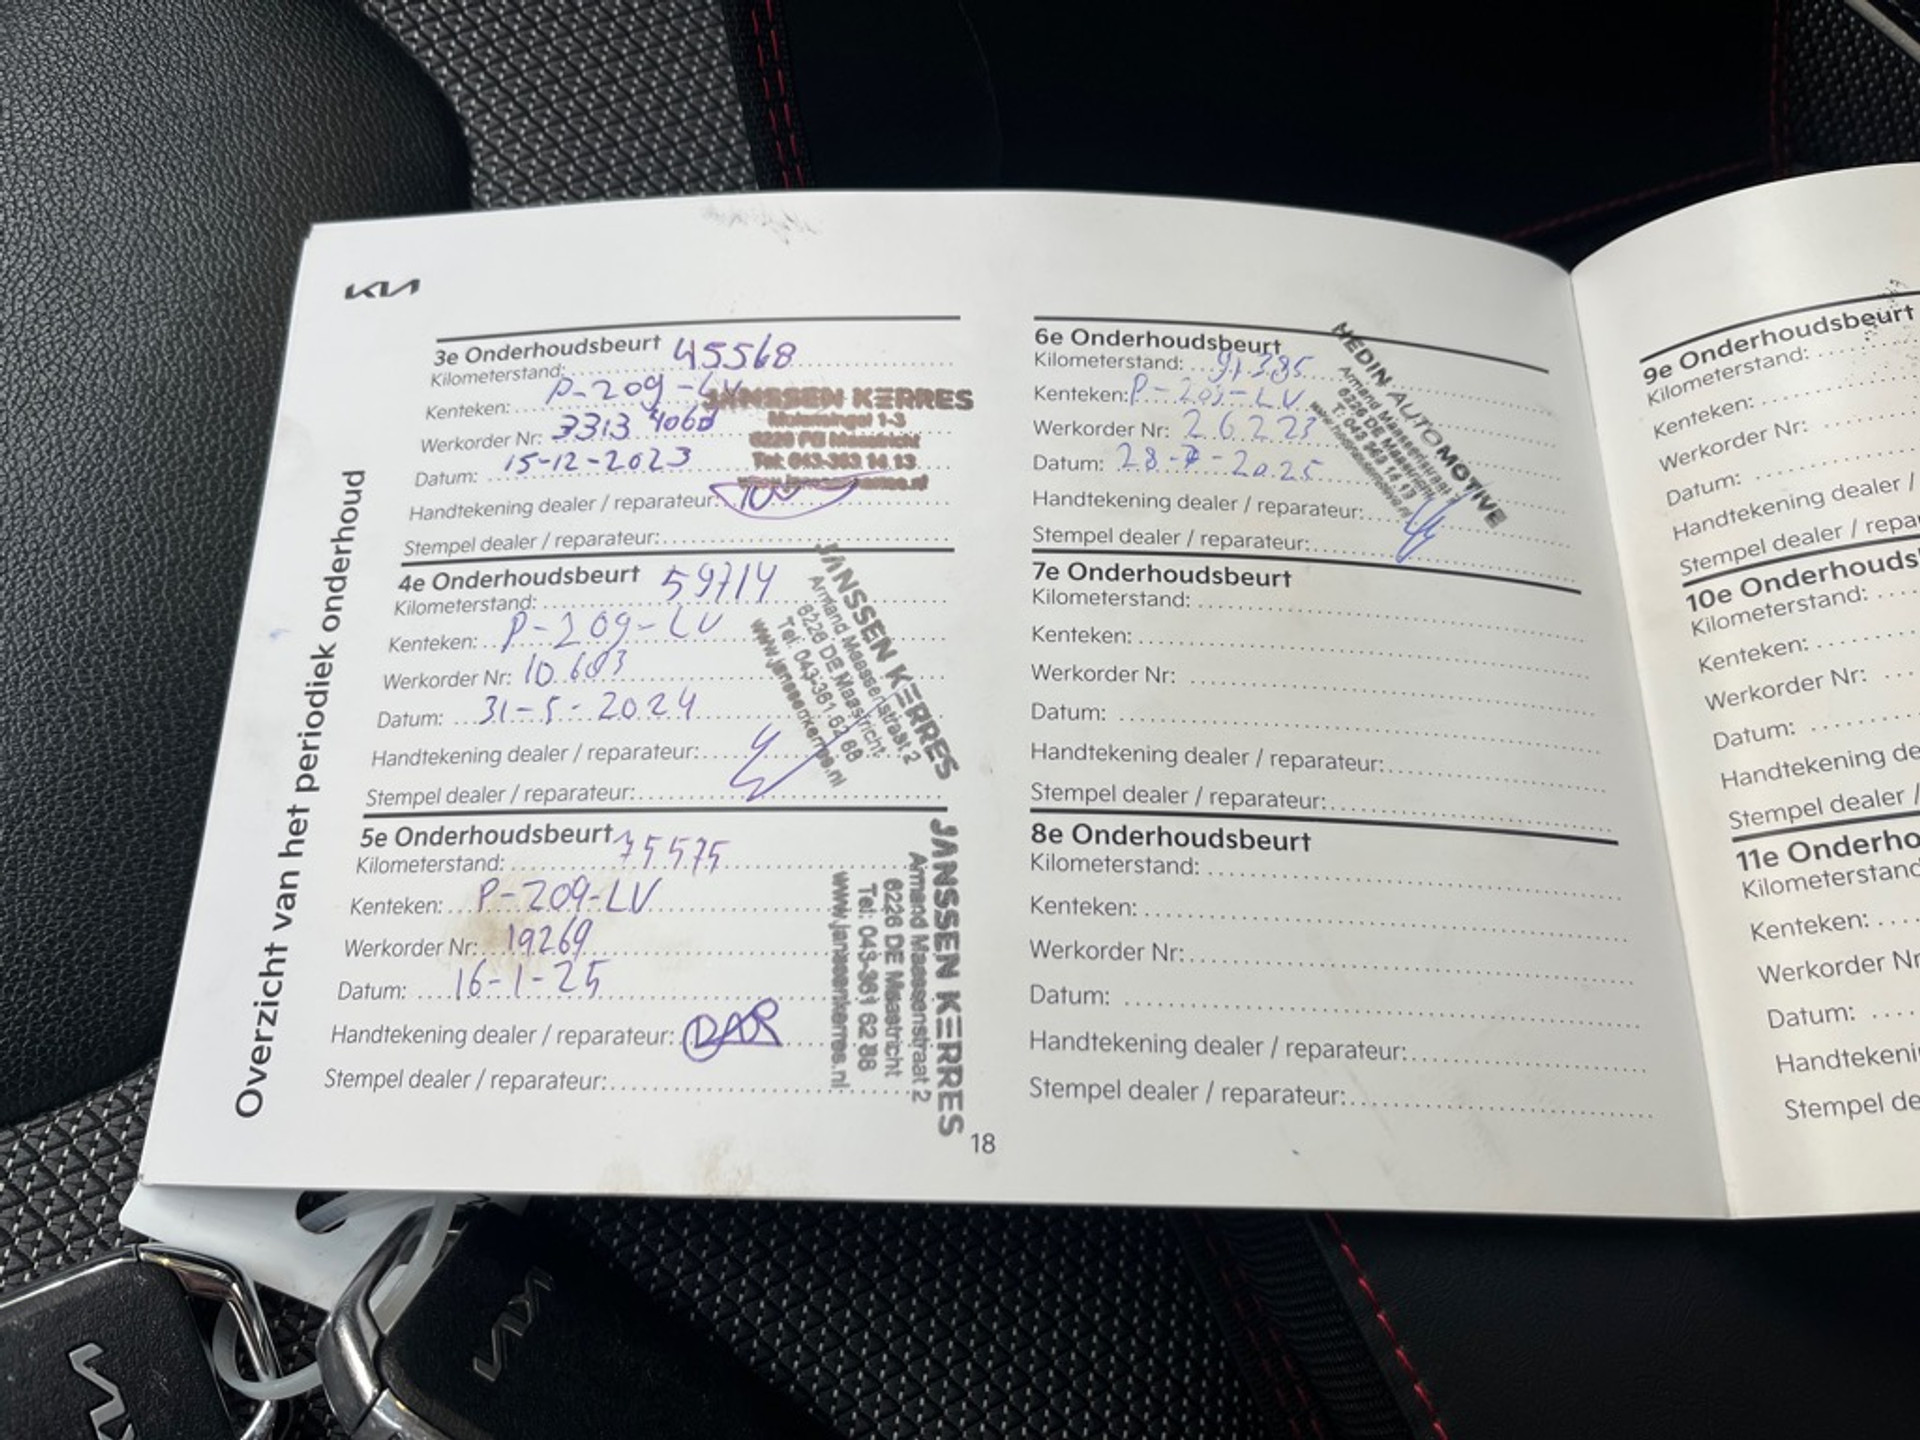 KIA
Overzicht van het periodiek onderhoud
3e Onderhoudsbeurt
Kilometerstand: 45568
Kenteken: P-209-LV
Werkorder Nr: 3313
Datum: 15-12-2023
Handtekening dealer / reparateur:
Stempel dealer / reparateur:
JANSSEN KERRES
1-3
Maastricht
Tel: 043-363 14 13
4e Onderhoudsbeurt
Kilometerstand: 59714
Kenteken: P-209-LV
Werkorder Nr: 10603
Datum: 31-5-2024
Handtekening dealer / reparateur:
Stempel dealer / reparateur:
JANSSEN KERRES
Armand Maassenstraat 2
6226 DE Maastricht
Tel: 043-361 62 88
www.janssenkerres.nl
5e Onderhoudsbeurt
Kilometerstand: 75575
Kenteken: P-209-LV
Werkorder Nr: 19269
Datum: 16-1-25
Handtekening dealer / reparateur:
Stempel dealer / reparateur:
JANSSEN KERRES
Armand Maassenstraat 2
6226 DE Maastricht
Tel: 043-361 62 88
www.janssenkerres.nl
18
6e Onderhoudsbeurt
Kilometerstand: 91385
Kenteken: P-209-LV
Werkorder Nr: 26223
Datum: 28-7-2025
Handtekening dealer / reparateur:
Stempel dealer / reparateur:
HEDIN AUTOMOTIVE
Armand Maassenstraat 2
6226 DE Maastricht
T: 043 363 14 13
www.hedinautomotive.nl
7e Onderhoudsbeurt
Kilometerstand:
Kenteken:
Werkorder Nr:
Datum:
Handtekening dealer / reparateur:
Stempel dealer / reparateur:
8e Onderhoudsbeurt
Kilometerstand:
Kenteken:
Werkorder Nr:
Datum:
Handtekening dealer / reparateur:
Stempel dealer / reparateur:
9e Onderhoudsbeurt
Kilometerstand:
Kenteken:
Werkorder Nr:
Datum:
Handtekening dealer /
Stempel dealer / repa
10e Onderhouds
Kilometerstand:
Kenteken:
Werkorder Nr:
Datum:
Handtekening de
Stempel dealer /
11e Onderho
Kilometerstand
Kenteken:
Werkorder Nr
Datum:
Handtekeni
Stempel de
KIA